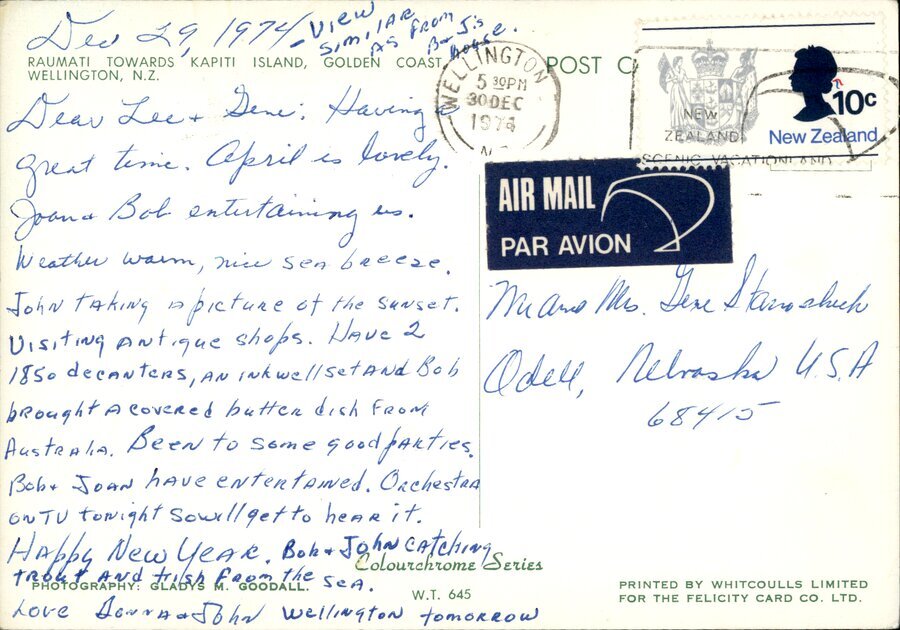 Dec 29, 1974 - VIEW
SIMILAR
AS FROM
B & J's
House.
RAUMATI TOWARDS KAPITI ISLAND, GOLDEN COAST,
WELLINGTON, N.Z.
POST C
WELLINGTON
5 30PM
30 DEC
1974
N.Z.
NEW
ZEALAND
SCENIC VACATIONLAND
10c
New Zealand
AIR MAIL
PAR AVION
Dear Lee & Gene: Having a
great time. April is lovely.
Joan & Bob entertaining us.
Weather warm, nice sea breeze.
John taking a picture of the sunset.
Visiting antique shops. Have 2
1850 decanters, an inkwell set and Bob
brought a covered butter dish from
Australia. Been to some good parties.
Bob & Joan have entertained. Orchestra
on TV tonight so will get to hear it.
Happy New Year. Bob & John catching
trout and fish from the sea.
Love Donna & John Wellington tomorrow
Mr and Mrs. Gene
Odell, Nebraska U.S.A
68415
Colourchrome Series
PHOTOGRAPHY: GLADYS M. GOODALL.
W.T. 645
PRINTED BY WHITCOULLS LIMITED
FOR THE FELICITY CARD CO. LTD.